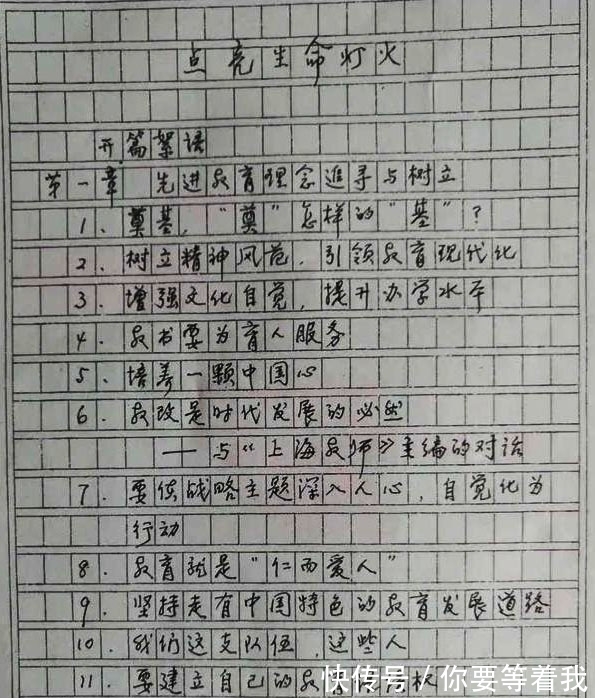 点亮生命灯火
开篇絮语
第一章 先进教育理念追寻与树立
1. 奠基,“奠”怎样的“基”?
2. 树立精神风范,引领教育现代化
3. 增强文化自觉,提升办学水平
4. 教书要为育人服务
5. 培养一颗中国心
6. 教改是时代发展的必然
——与《上海教师》主编的对话
7. 要使战略主题深入人心,自觉化为
行动
8. 教育就是“仁而爱人”
9. 坚持走有中国特色的教育发展道路
10. 我们这支队伍,这些人
11. 要建立自己的教
快传号/你要等着我